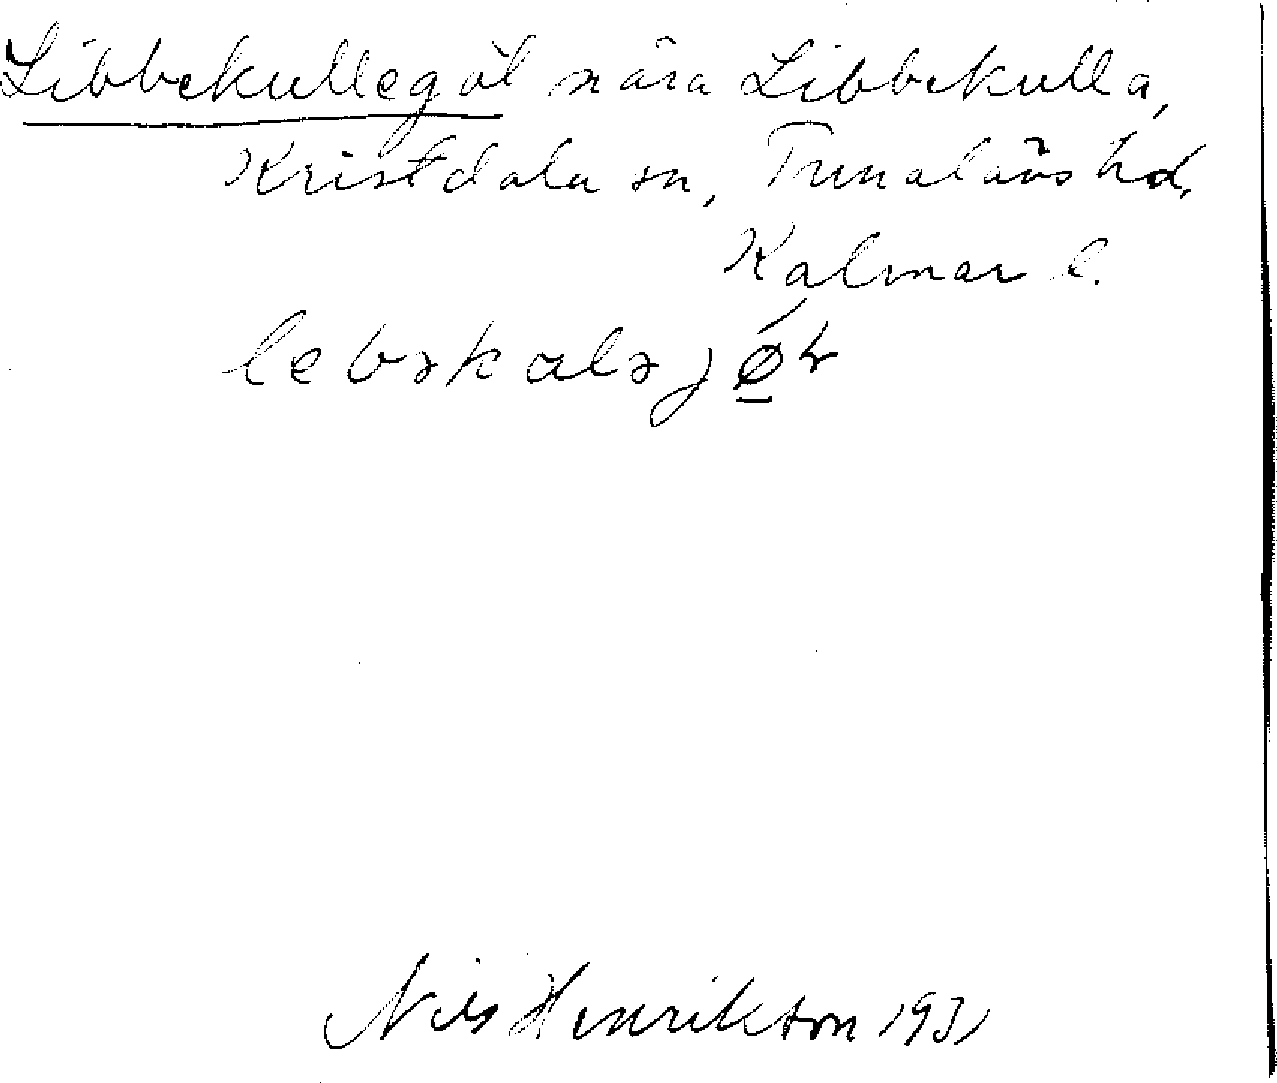 Libbekullegöl nära Libbekulla,
Kristdala sn, Tunaläns hd.
Kalmar l.
Nils Henrikson 1931